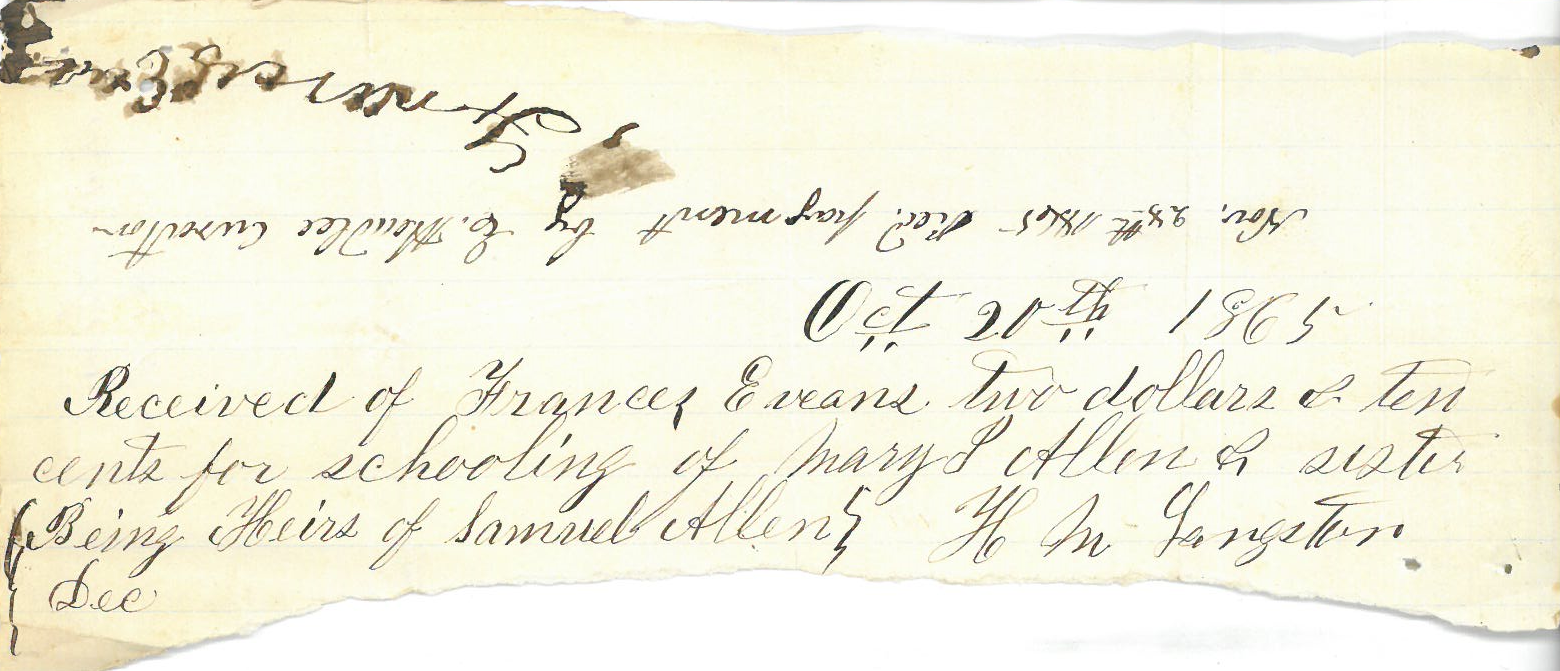 Oct 20th 1865
Received of Frances Eveans two dollars & ten
cents for schooling of Mary P Allen & sister
{Being Heirs of Samuel Allen} H M Langston
Dec
Nov. 28th 1865 Recd. payment by C. Curator